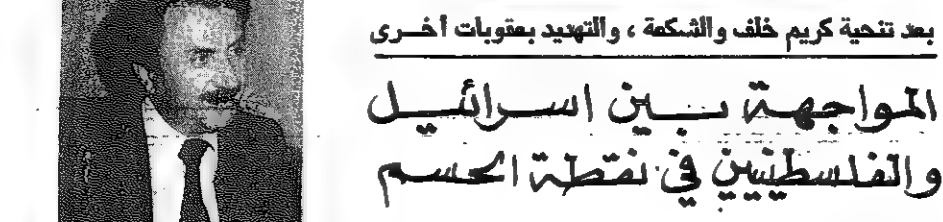 بعد تنحية كريم خلف والشكعة ، والتهديد بعقوبات أخــرى
المواجهـة بــين اســرائيــل
والفلسطينيين في نقطة الحســم